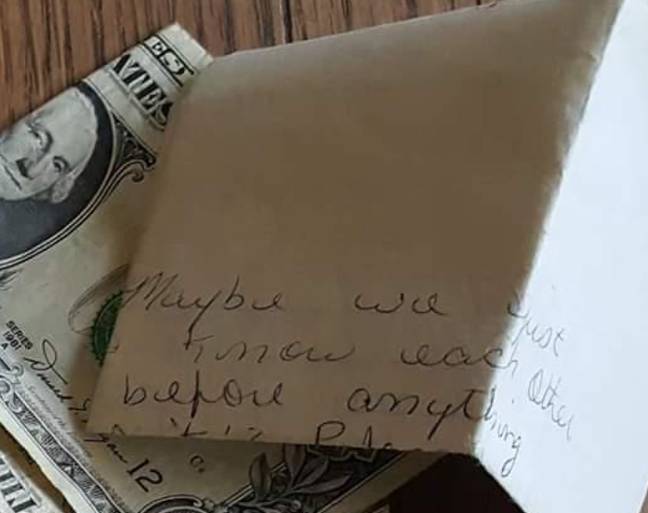 ES
ATES
SERIES
1981
12
Maybe we just
know each other
before anything